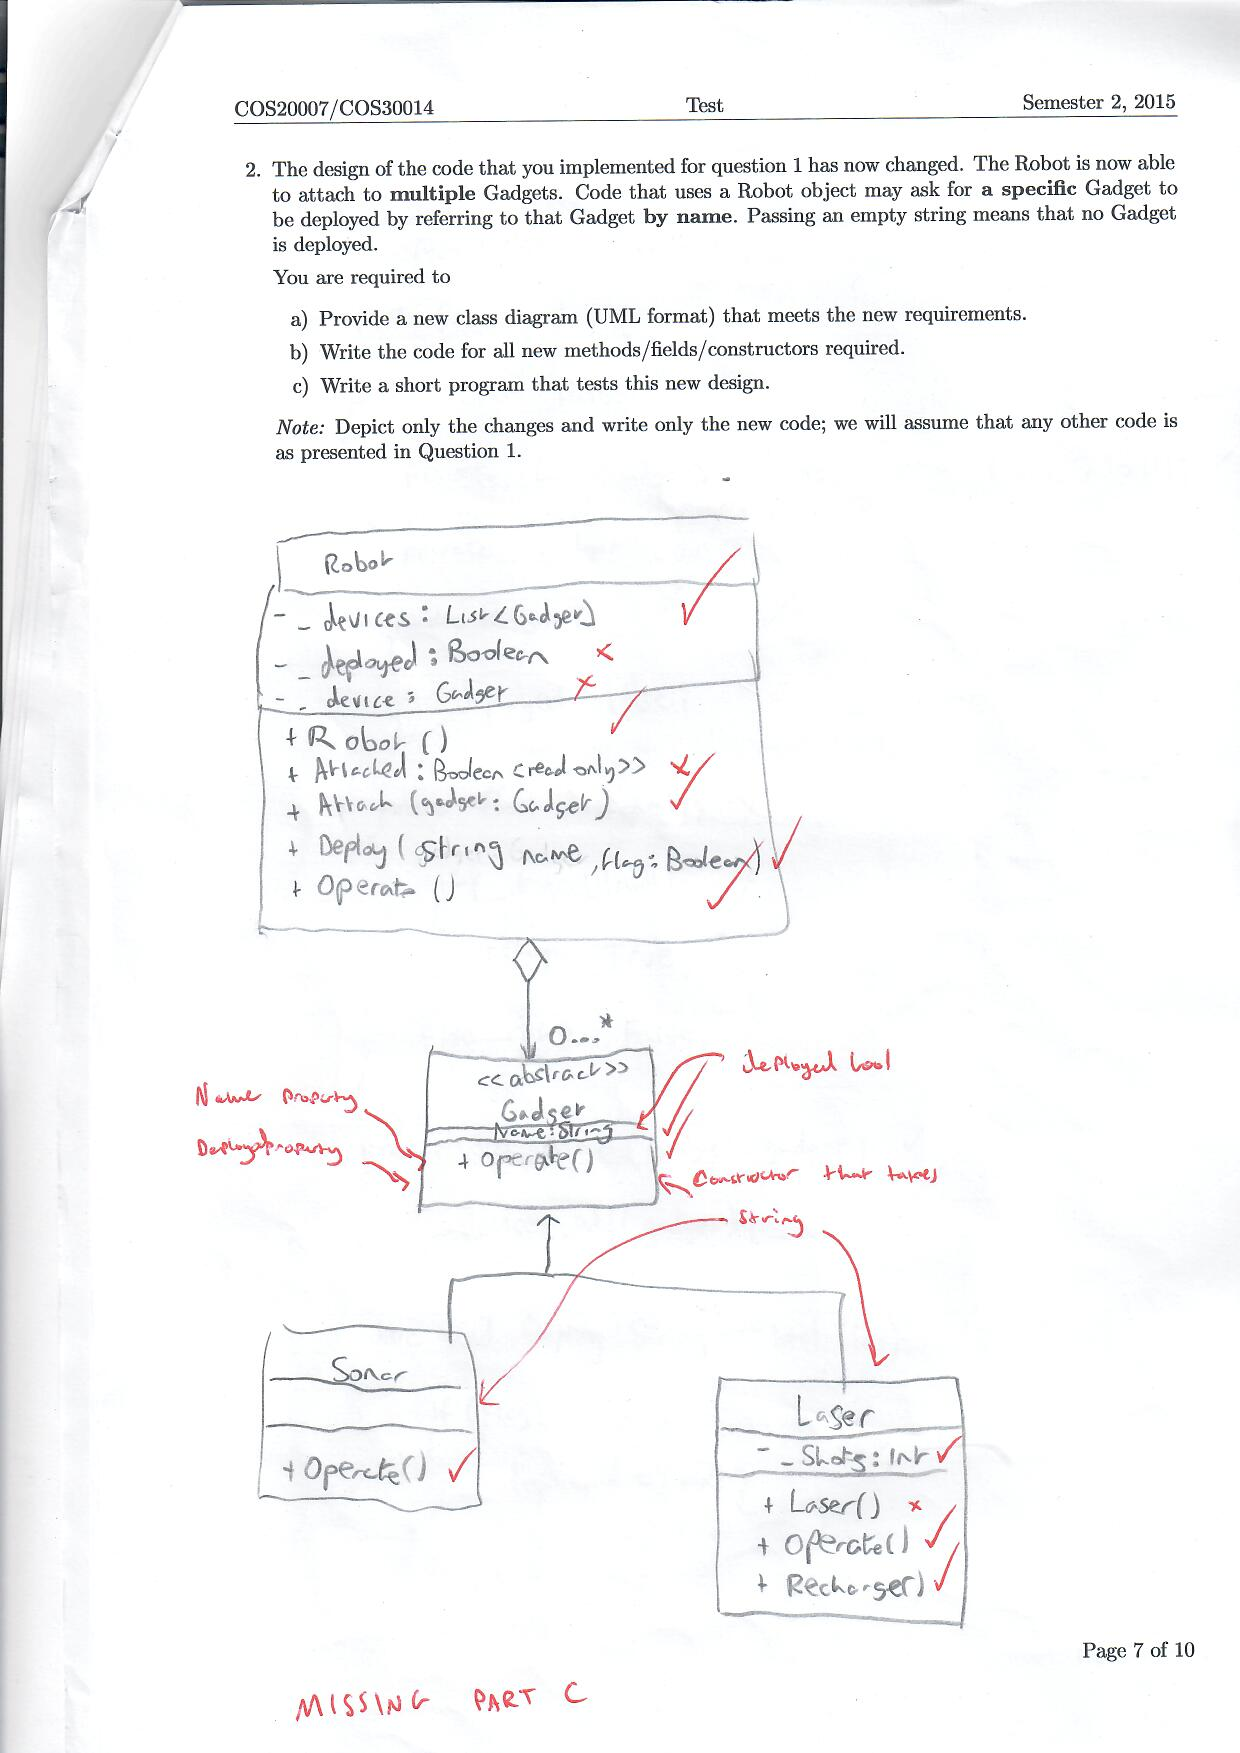 COS20007/COS30014 Test Semester 2, 2015
2. The design of the code that you implemented for question 1 has now changed. The Robot is now able
to attach to multiple Gadgets. Code that uses a Robot object may ask for a specific Gadget to
be deployed by referring to that Gadget by name. Passing an empty string means that no Gadget
is deployed.
You are required to
a) Provide a new class diagram (UML format) that meets the new requirements.
b) Write the code for all new methods/fields/constructors required.
c) Write a short program that tests this new design.
Note: Depict only the changes and write only the new code; we will assume that any other code is
as presented in Question 1.
Robot
- _ devices : List<Gadget>
- _ deployed : Boolean ×
- _ device : Gadget ×
+ Robot ()
+ Attached : Boolean <read only>> ×
+ Attach (gadget : Gadget)
+ Deploy ( string name , flag : Boolean)
+ Operate ()
0...*
<<abstract>>
Gadget
Name : String
+ Operate()
deployed bool
Name property
Deployed property
Constructor that takes
String
Sonar
+ Operate()
Laser
- _ Shots : Int
+ Laser() ×
+ Operate()
+ Recharge()
Page 7 of 10
MISSING PART C